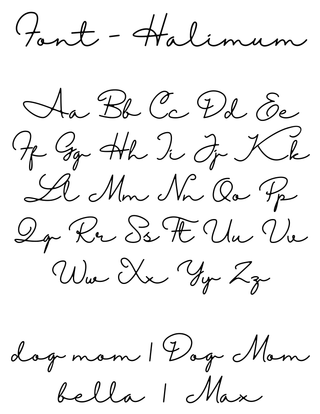 Font - Halimum
Aa Bb Cc Dd Ee
Ff Gg Hh Ii Jj Kk
Ll Mm Nn Oo Pp
Qq Rr Ss Tt Uu Vv
Ww Xx Yy Zz
dog mom | Dog Mom
bella | Max